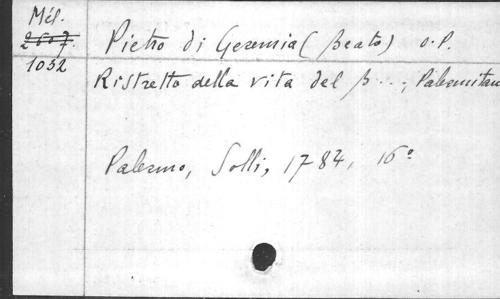 Mél.
2607.
1032
Pietro di Geremia (Beato) O.P.
Ristretto della vita del B...., Palermitan
Palermo, Solli, 1784, 16°